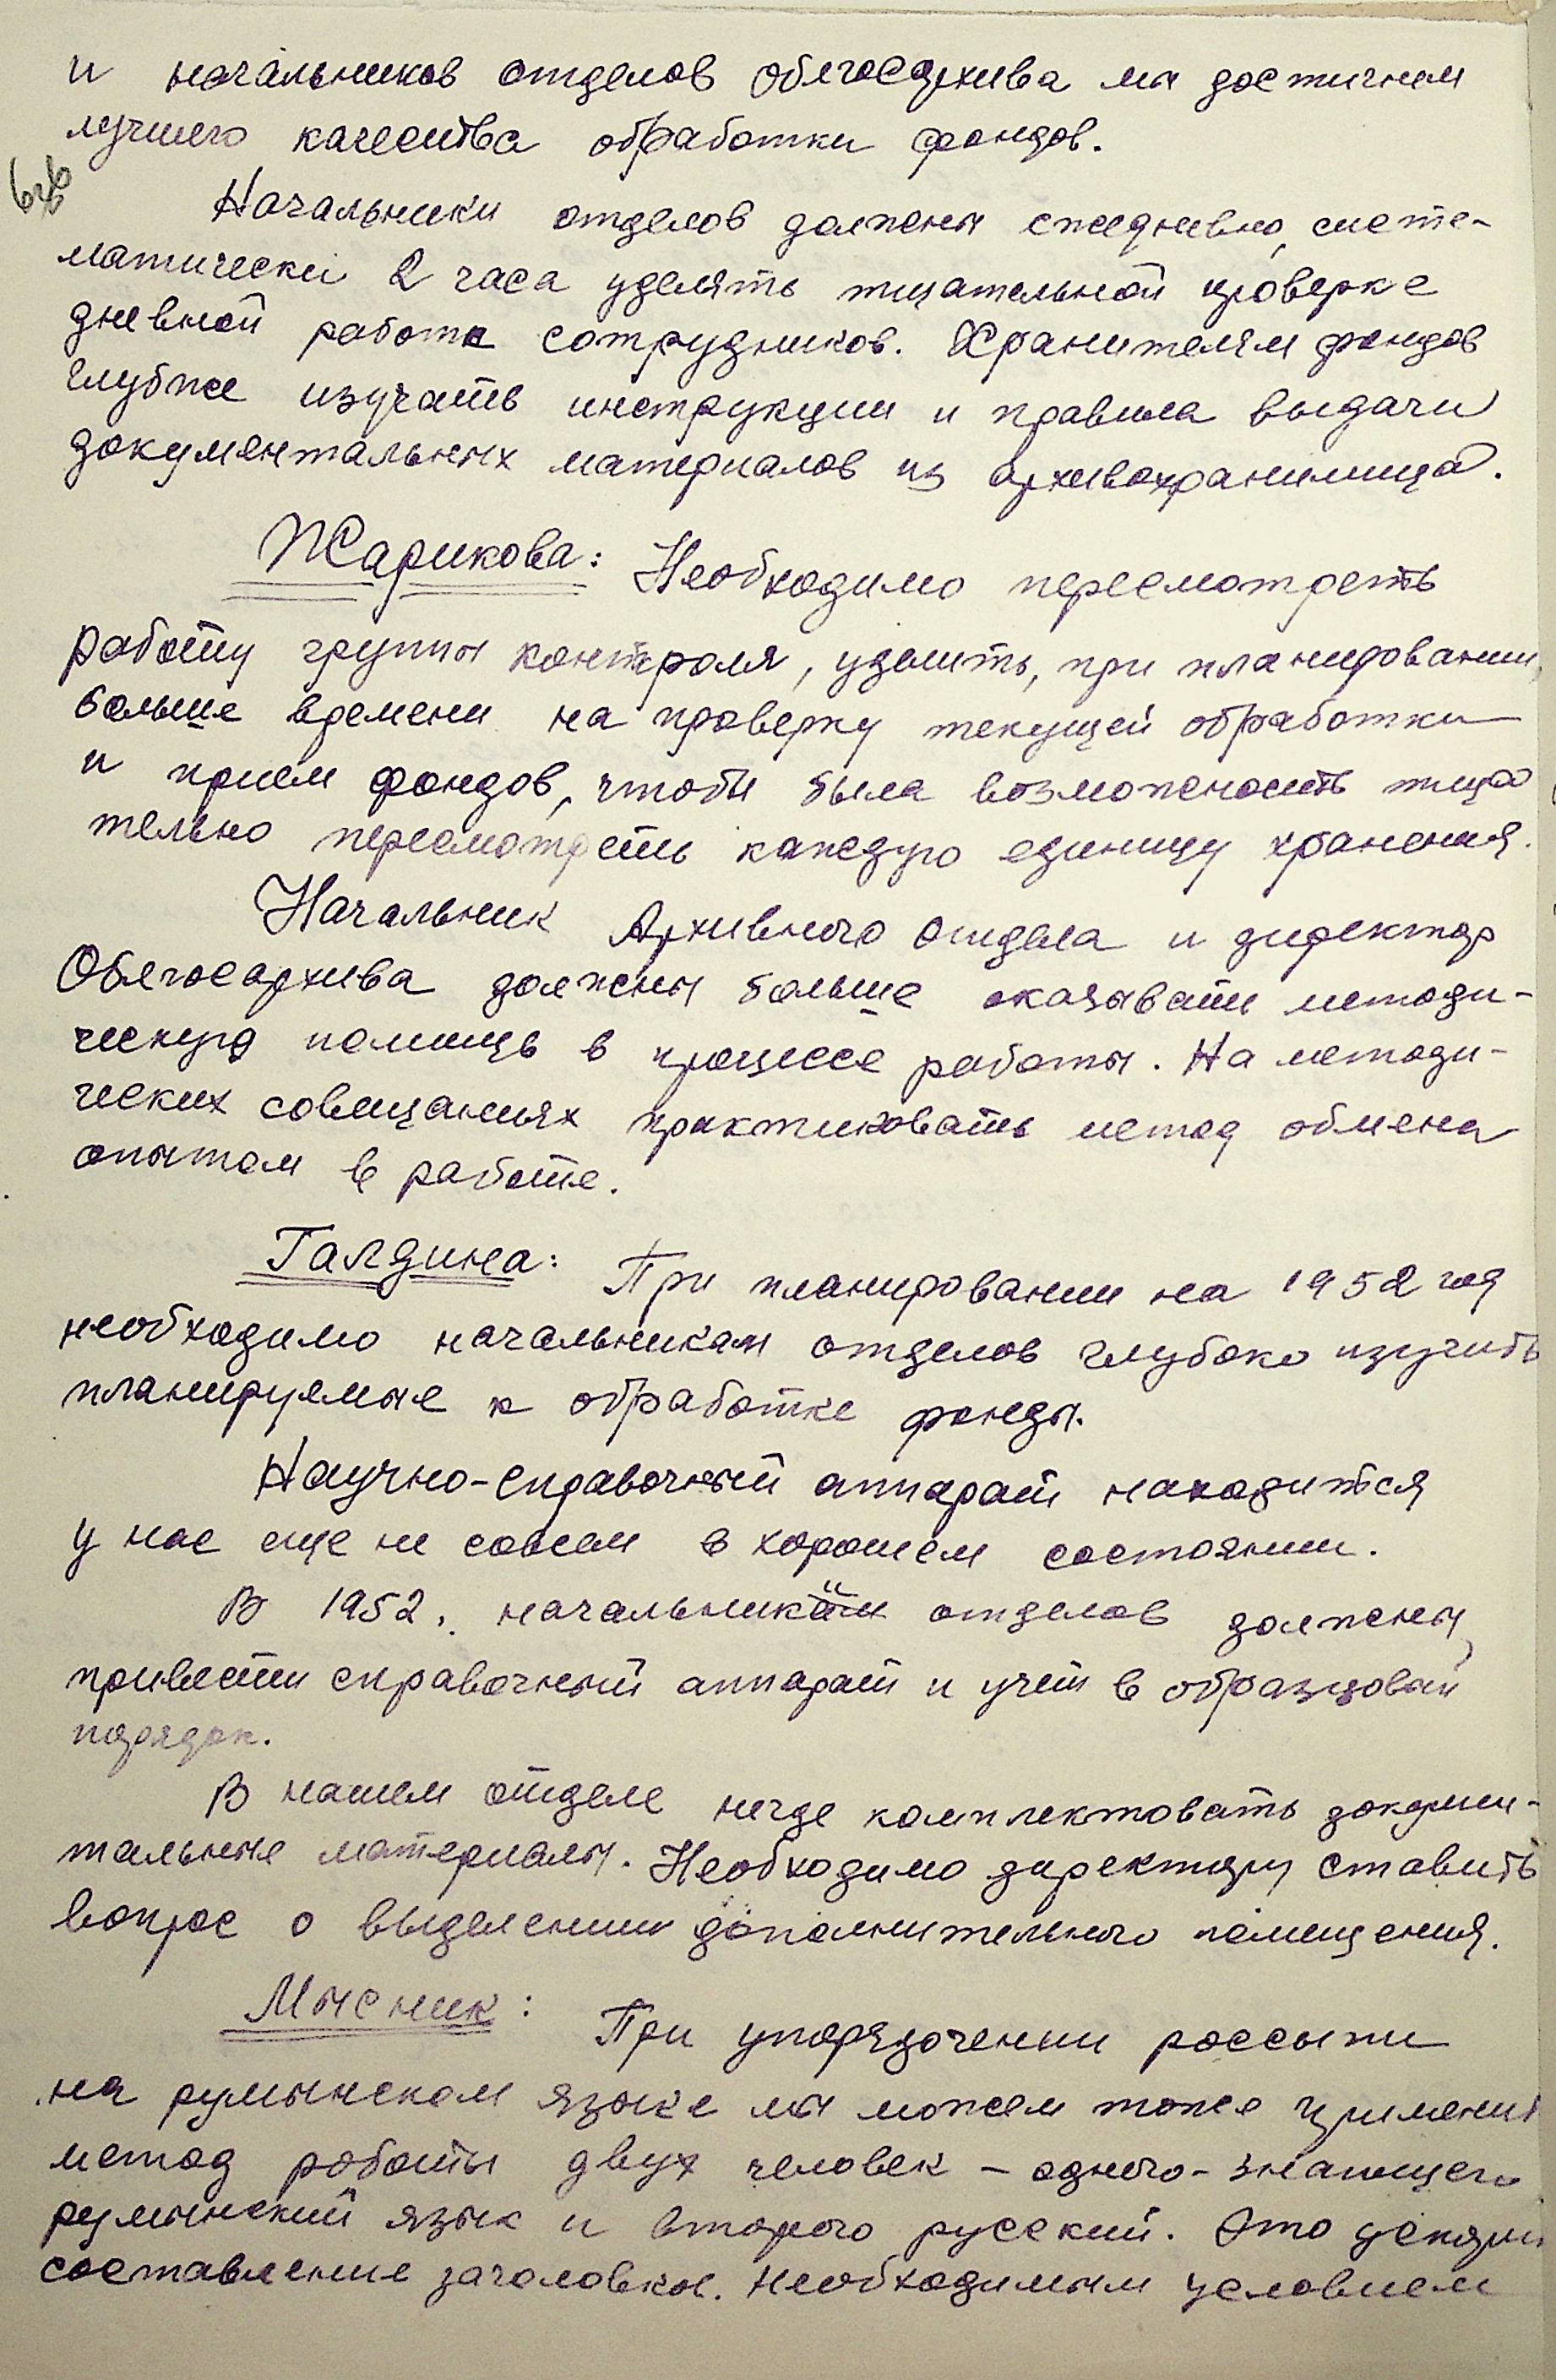 и начальников отделов Облгосархива мы достигнем
лучшего качества обработки фондов.
Начальники отделов должны ежедневно, систе-
матически 2 часа уделять тщательной проверке
дневной работы сотрудников. Хранителям фондов
глубже изучать инструкции и правила выдачи
документальных материалов из архивохранилища.
Жарикова: Необходимо пересмотреть
работу группы контроля, уделить, при планировании,
больше времени на проверку текущей обработки
и прием фондов, чтобы была возможность тща
тельно пересмотреть каждую единицу хранения.
Начальник Архивного отдела и директор
Облгосархива должны больше оказывать методи-
ческую помощь в процессе работы. На методи-
ческих совещаниях практиковать метод обмена
опытом в работе.
Галдина: При планировании на 1952 год
необходимо начальникам отделов глубоко изучить
планируемые к обработке фонды.
Научно-справочный аппарат находится
у нас еще не совсем в хорошем состоянии.
В 1952. начальники отделов должны,
привести справочный аппарат и учет в образцовый
порядок.
В нашем отделе негде комплектовать докумен-
тальные материалы. Необходимо директору ставить
вопрос о выделении дополнительного помещения.
Мысник: При упорядочении россыпи
на румынском языке мы можем тоже применит
метод работы двух человек – одного – знающего
румынский язык и второго русский. Это ускорит
составление заголовков. Необходимым условием